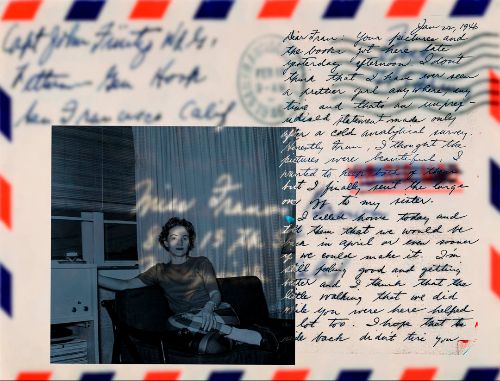 Capt John
Letterman Gen Hosp
San Francisco Calif
Miss Fran
15 th
Jan 22, 1946
Dear Fran: Your pictures and
the books got here late
yesterday afternoon. I dont
think that I have ever seen
a prettier girl anywhere, any
time and thats an unprej-
udiced statement made only
after a cold analytical survey.
Honestly Fran, I thought the
pictures were beautiful. I
wanted to keep both of them
but I finally sent the large
on off to my sister.
I called home today and
told them that we would be
back in april or even sooner
if we could make it. I'm
still feeling good and getting
better and I think that the
little walking that we did
while you were here helped
a lot too. I hope that the
ride back didnt tire you